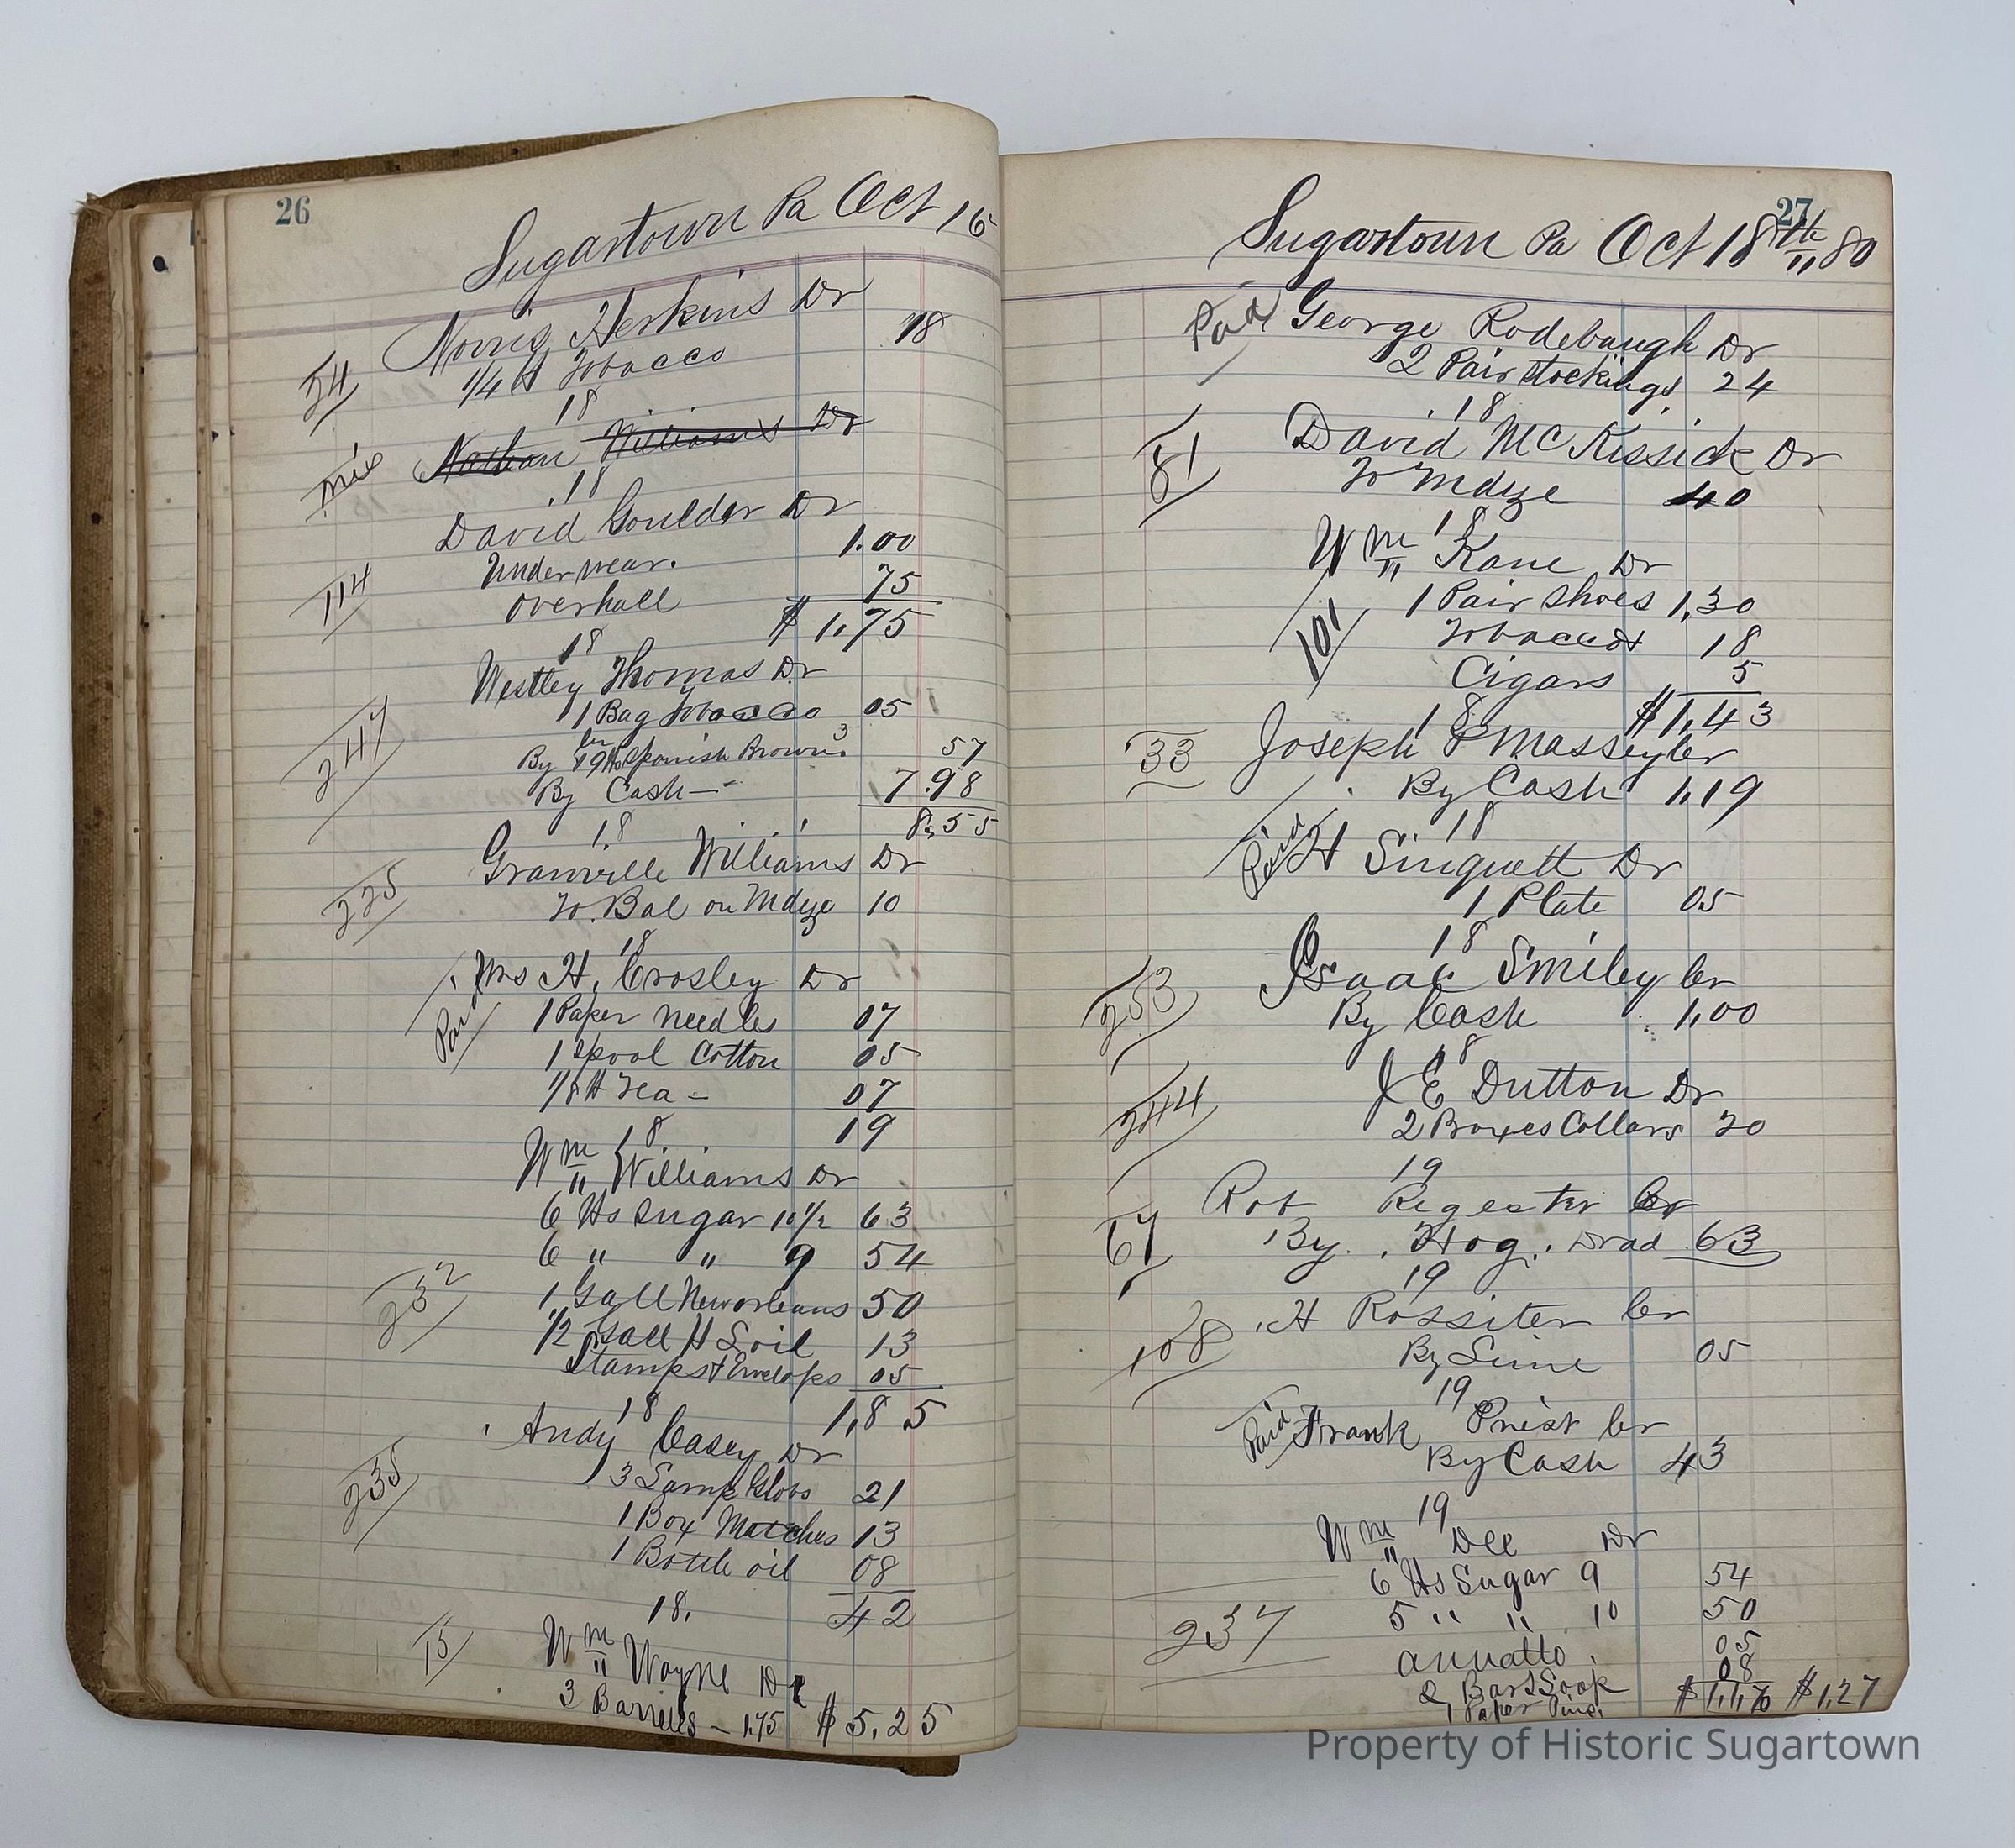 26
Sugartown Pa Oct 16
Norris Herkins Dr
24
1/4 ℔ Tobacco 18
18
mix
Nathan Williams Dr
18
David Goulder Dr
114
Underwear. 1.00
overhall 75
$1,75
18
Westley Thomas Dr
247
1 Bag Tobacco 05
Cr
By 19 ℔s Spanish Brown 3 57
By Cash — 7.98
8,55
18
Granville Williams Dr
225
To. Bal on Mdze 10
18
Mrs H. Crosley Dr
Paid
1 Paper needles 07
1 Spool Cotton 05
1/8 ℔ Tea - 07
19
18
Wm Williams Dr
232
6 ℔s Sugar 10 1/2 63
6 " " 9 54
1 Gall Neworleans 50
1/2 Gall H L oil 13
Stamps & Envelops 05
1,85
18
Andy Casey Dr
235
3 Lamp Globs 21
1 Box Matches 13
1 Bottle oil 08
42
18.
15
Wm Wayne Dr
3 Barrells - 1.75 $5,25
27
Sugartown Pa Oct 18th 80
Paid George Rodebaugh Dr
2 Pair Stockings 24
18
81
David McKissick Dr
To Mdze 40
18
Wm Kane Dr
101
1 Pair Shoes 1,30
Tobacco 18
Cigars 5
$1,43
18
33
Joseph P Massey Cr
By Cash 1,19
18
Paid H Singuett Dr
1 Plate 05
18
253
Isaac Smiley Cr
By Cash 1,00
18
244
J E Dutton Dr
2 Boxes Collars 20
19
Rob Regester Cr
67
By. Hog. Drad 63
19
108
H Rossiter Cr
By Lime 05
19
Paid Frank Priest Cr
By Cash 43
19
Wm Dee Dr
237
6 ℔s Sugar 9 54
5 " " 10 50
annatto 05
2 Bars Soap 08
1 Paper Pins. $1,27
Property of Historic Sugartown